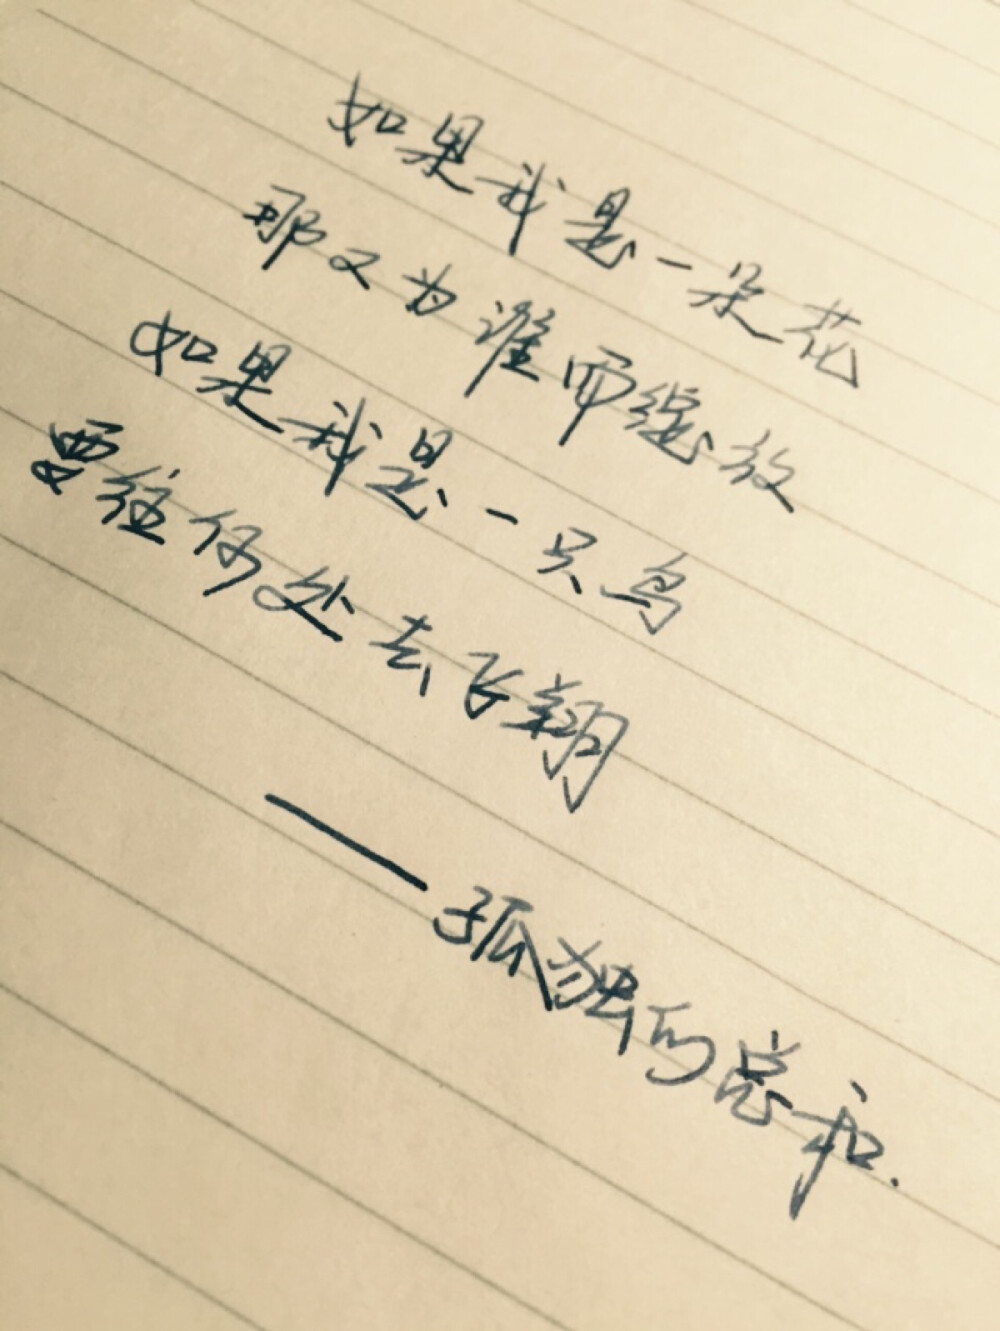 如果我是一朵花
那又为谁而绽放
如果我是一只鸟
要往何处去飞翔
——孤独的总和.